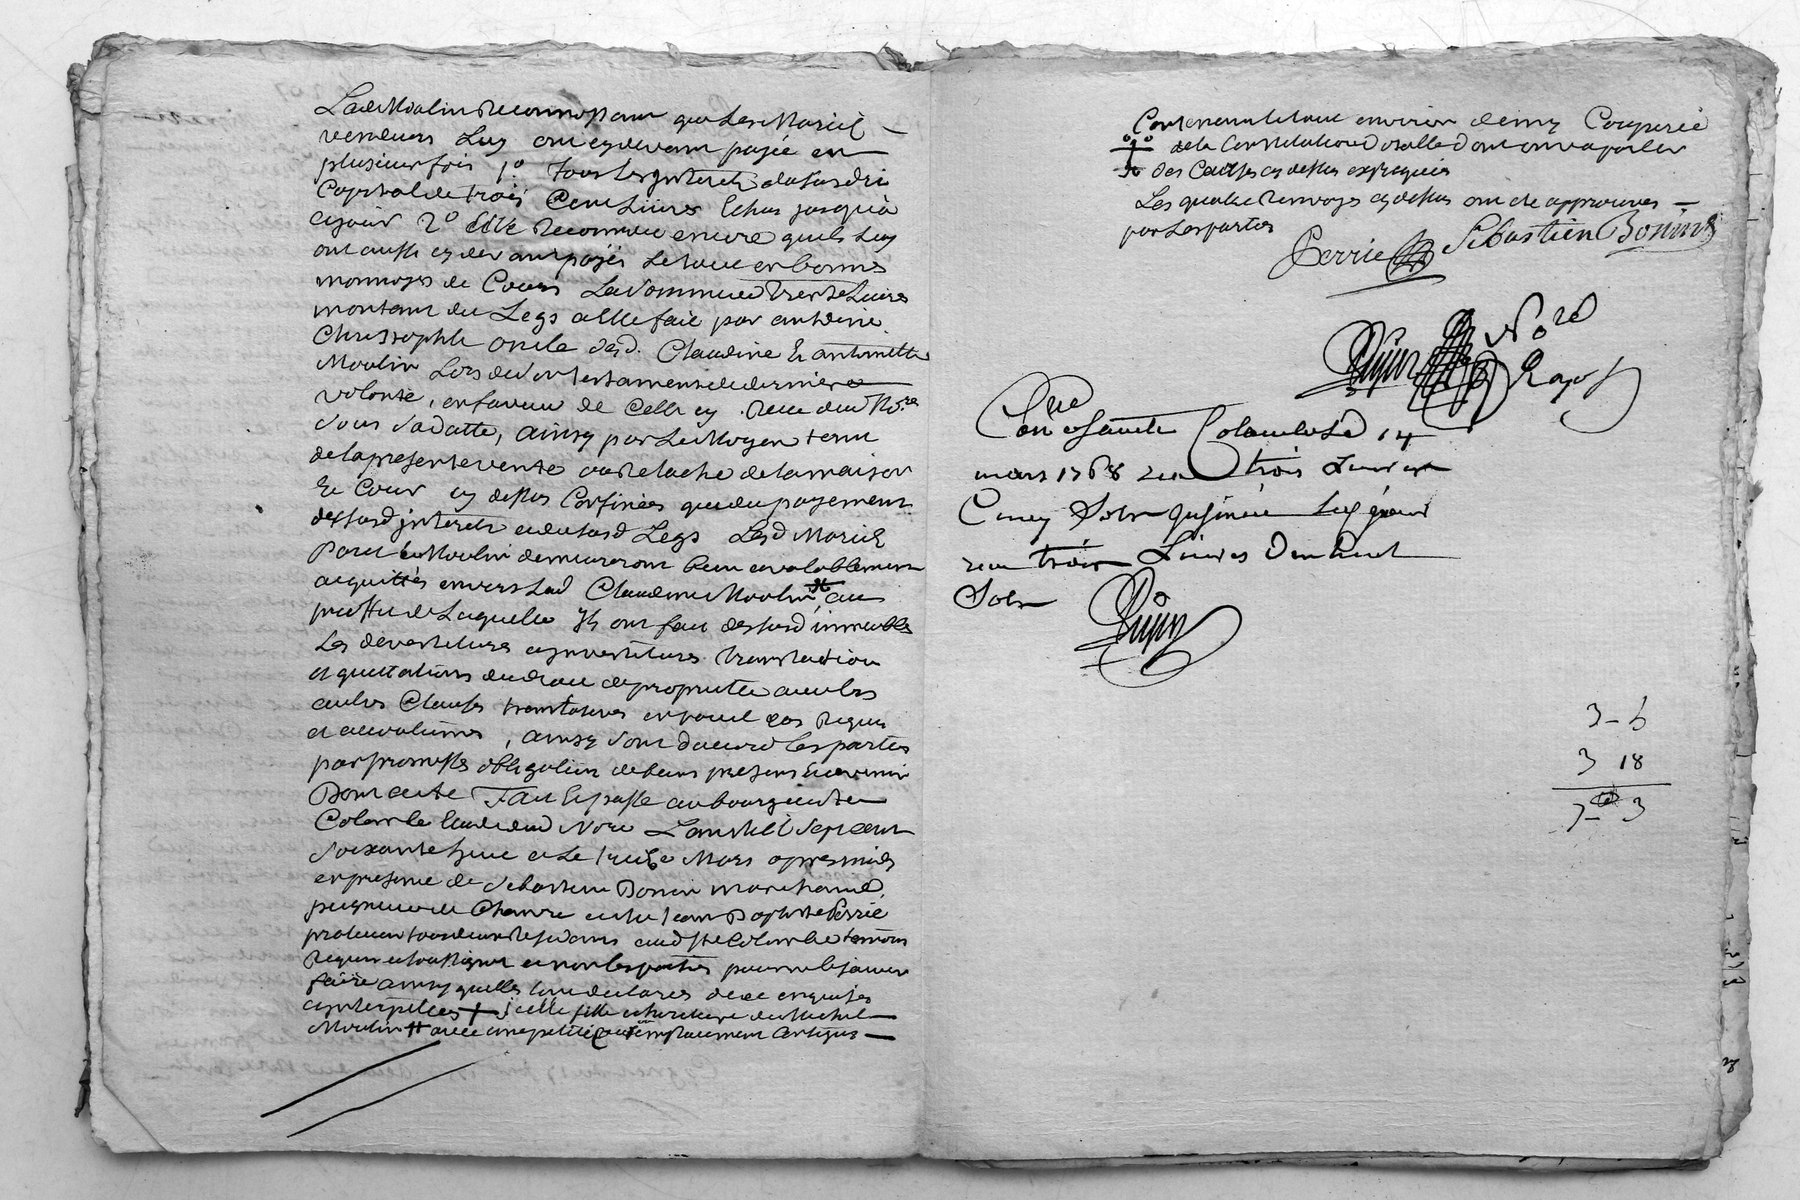 Lade Moulin Reconnoissant que Les Mariés
vendeurs Luy ont cy devant payé en
plusieur fois 1.° tous les interets dususdit
Capital de trois Cent Livres Echus jusqu'à
cejour 2° Elle Reconnoit encore quils Luy
ont aussy cy devant payés Le tout en bonnes
monnoyes de Cours La somme de trente Livres
montant du Legs a Elle fait par antoine
Christophle oncle desd. Claudine Et antoinette
Moulin Lors de son testament de derniere
volonté, en faveur de Celle cy Receu dud No.re
sous sa datte, ainsy par Le Moyen tant
de la presente vente que Relache de la maison
Et Cour cy dessus Confinées que du payement
desusd interets et dususd Legs Lesd Mariés
et Moulin demeureront bien et valablement
acquittés envers Lad Claudine Moulin, au
proffit de Laquelle Ils ont fait desusd immeubles
Les devestitures et investitures translation
et quittations du droit de propriété avec Les
autres Clauses translatives en pareil cas Requis
et accoutumés, ainsy sont d'accord Les parties
par promesses obligation de biens presens Et avenir
Dont acte Fait Et passé au bourg de Ste
Colombe Etude dud Nore L'an Mil Sept Cent
Soixante huit et Le treize Mars apres midy
en presence de Sebastien Bonin marchand
peigneur de Chanvre et de Jean Baptiste Perrié
tous deux Residants aud Ste Colombe temoins
Requis et soussignés et non Les parties pour ne le savoir
faire ainsy quelles l'ont declarés de ce enquises
et interpellées + icelle fille et heritiere de Michel
Moulin # avec une petite Cour emplacement Contigus
Contenant le tout environ demy Couperée
de la Constitution dotalle dont on va parler
des Causes cy dessus expliquées
Les quatre Renvoys cy dessus ont été approuvés
par Les parties
Perrie Sebastien Bonin
Nore
Royal
Con.lle a Sainte Colombe Le 14
mars 1768 reçu trois Livres
Cinq Sols insinué Led jour
reçu trois Livres Dixhuit
Sols
3 - 5
3 18
7 - 3